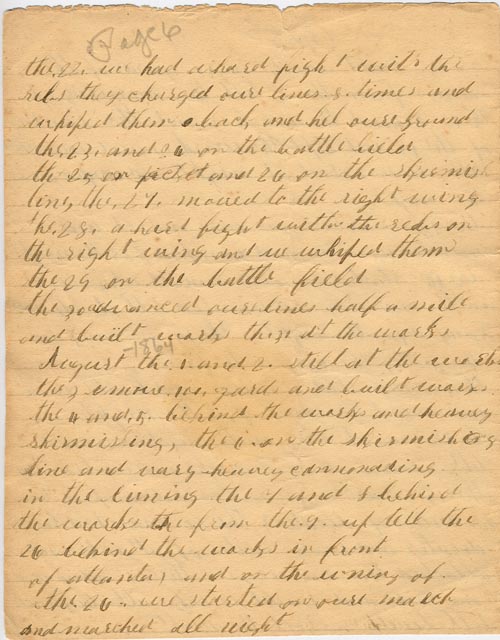 Page 6
the 22. we had a hard fight with the
rebs they charged oure lines 8 times and
whiped them back and hel oure ground
the 23. and 24 on the battle field
the 25 on picket and 26 on the skirmish
line, the 27. moved to the right wing
the 28. a hard fight with the rebs on
the right wing and we whiped them
the 29 on the battle field
the 30 advanced oure lines half a mile
and built works the 31 at the works
1864
August the 1 and 2. still at the works
the 3 move 100 yards and built works
the 4 and 5. behind the works and heavey
skirmissing, the 6. on the skirmishing
line and vary heavey cannonading
in the evning the 7 and 8 behind
the works the from the 9. up tell the
26 behind the works in front
of atlanta, and on the evning of
the 26. we started on oure march
and marched all night